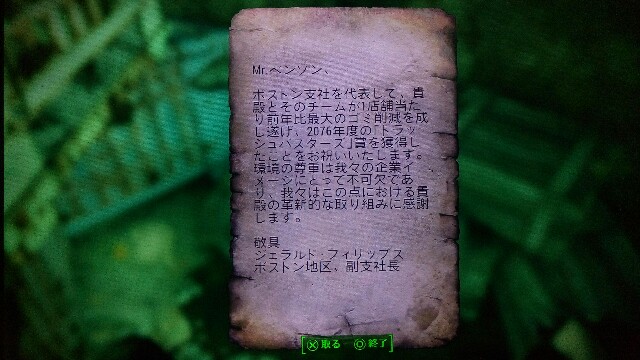 Mr.ヘンソン、
ボストン支社を代表して、貴
殿とそのチームが1店舗当た
り前年比最大のゴミ削減を成
し遂げ、2076年度の「トラッ
シュバスターズ」賞を獲得し
たことをお祝いいたします。
環境の尊重は我々の企業イ
メージにとって不可欠であ
り、我々はこの点における貴
殿の革新的な取り組みに感謝
します。
敬具
ジェラルド・フィリップス
ボストン地区、副支社長
取る
終了